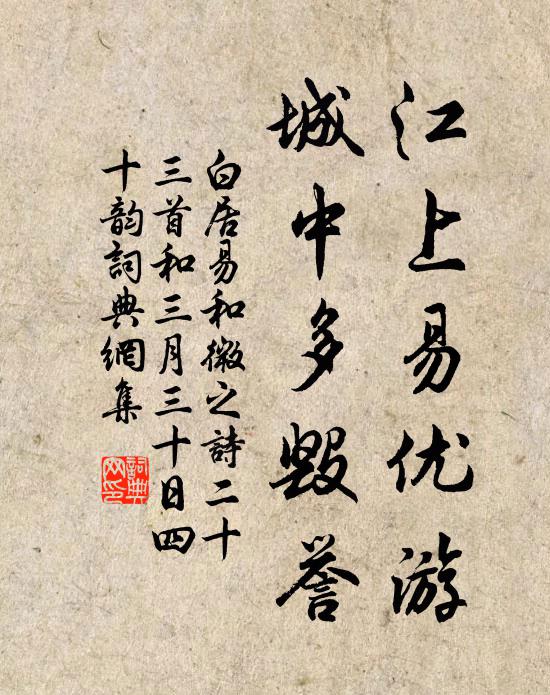 江上易优游
城中多毁誉
白居易和微之詩二十
三首和三月三十日四
十韵詞典網集
詞典
网印